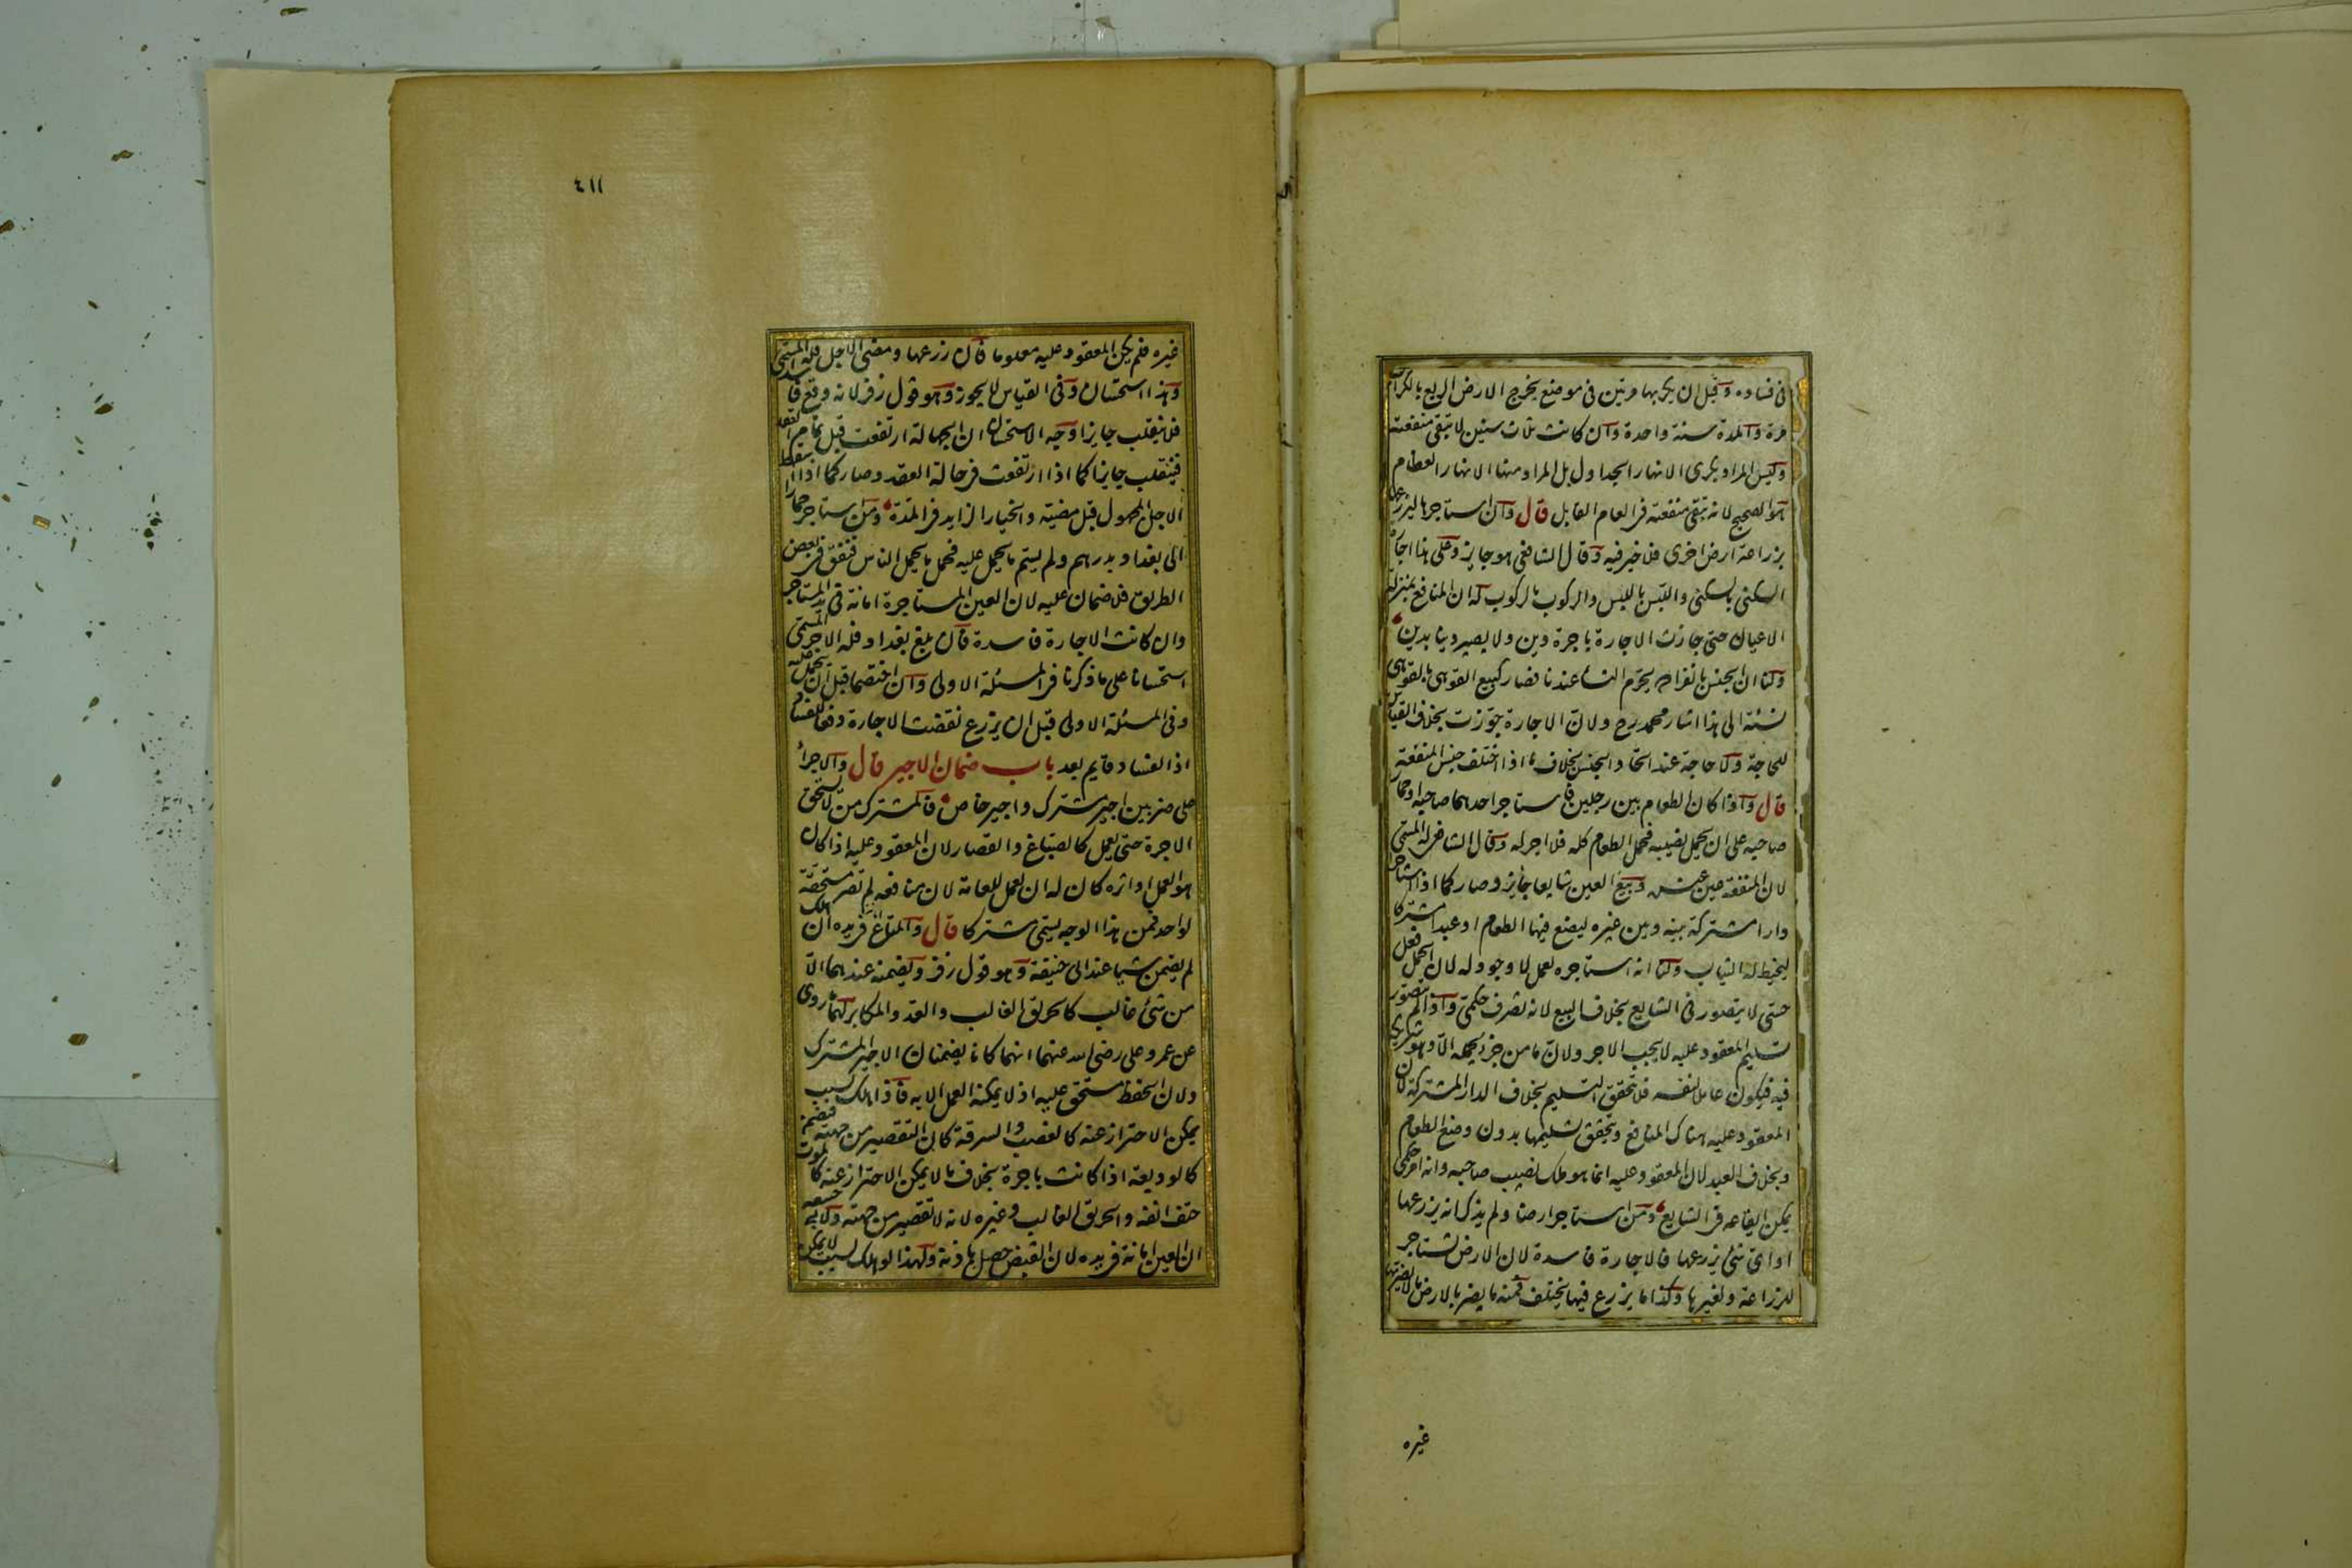 فى فساده وقيل ان يكربها مرتين فى موضع يخرج الارض الريع بالكراب
مرة والمدة سنة واحدة وان كانت ثلاث سنين لا تبقى منفعته
وليس المراد بكرى الانهار الجداول بل المراد منها الانهار العظام
هو الصحيح لانه تبقى منفعته فى العام القابل قال وان استاجرها ليزرعها
بزراعة ارض اخرى فلا خير فيه وقال الشافعى هو جايز وعلى هذا اجارة
السكنى بالسكنى واللبس باللبس والركوب بالركوب له ان المنافع بمنزلة
الاعيان حتى جازت الاجارة باجرة دين ولا يصير دينا بدين
ولنا ان الجنس بانفراده يحرم النساء عندنا فصار كبيع القوهى بالقوهى
نسئة الى هذا اشار محمد رح ولان الاجارة جوزت بخلاف القياس
للحاجة ولا حاجة عند اتحاد الجنس بخلاف ما اذا اختلف جنس المنفعة
قال واذا كان الطعام بين رجلين فاستاجر احدهما صاحبه او حمار
صاحبه على ان يحمل نصيبه فحمل الطعام كله فلا اجر له وقال الشافعى له المسمى
لان المنفعة عين عنده وبيع العين شايعا جايز وصار كما اذا استاجر
دارا مشتركة بينه وبين غيره ليضع فيها الطعام او عبدا مشتركا
ليخيط له الثياب ولنا انه استاجره لعمل لا وجود له لان الحمل فعل
حسى لا يتصور فى الشايع بخلاف البيع لانه تصرف حكمى واذا لم يتصور
تسليم المعقود عليه لا يجب الاجر ولان ما من جزء يحمله الا وهو شريك
فيه فيكون عاملا لنفسه فلا يتحقق التسليم بخلاف الدار المشتركة لان
المعقود عليه هناك المنافع ويتحقق تسليمها بدون وضع الطعام
وبخلاف العبد لان المعقود عليه انما هو ملك نصيب صاحبه وانه امر حكمى
يمكن ايقاعه فى الشايع ومن استاجر ارضا ولم يذكر انه يزرعها
او اى شئ يزرعها فالاجارة فاسدة لان الارض تستاجر
للزراعة ولغيرها وكذا ما يزرع فيها يختلف فمنه ما يضر بالارض ما لا يضر بها
غيره
٤١١
غيره فلم يكن المعقود عليه معلوما فان زرعها ومضى الاجل فله المسمى
وهذا استحسان وفى القياس لا يجوز وهو قول زفر لانه وقع فاسدا
فلا ينقلب جايزا وجه الاستحسان ان الجهالة ارتفعت قبل تمام العقد
فينقلب جايزا كما اذا ارتفعت فى حالة العقد وصار كما اذا اسقط
الاجل المجهول قبل مضيه والخيار الزايد فى المدة ومن استاجر حمارا
الى بغداد بدرهم ولم يسم ما يحمل عليه فحمل ما يحمل الناس فنفق فى بعض
الطريق فلا ضمان عليه لان العين المستاجرة امانة فى يد المستاجر
وان كانت الاجارة فاسدة فان بلغ بغداد فله الاجر المسمى
استحسانا على ما ذكرنا فى المسئلة الاولى وان اختصما قبل ان يحمل عليه
وفى المسئلة الاولى قبل ان يزرع نقضت الاجارة دفعا للفساد
اذ الفساد قايم بعد باب ضمان الاجير قال والاجراء
على ضربين اجير مشترك واجير خاص فالمشترك من لا يستحق
الاجرة حتى يعمل كالصباغ والقصار لان المعقود عليه اذا كان
هو العمل او اثره كان له ان يعمل للعامة لان منافعه لم تصر مستحقة
لواحد فمن هذا الوجه يسمى مشتركا قال والمتاع فى يده ان هلك
لم يضمن شيا عند ابى حنيفة وهو قول زفر ويضمنه عندهما الا
من شئ غالب كالحريق الغالب والعدو المكابر لهما ما روى
عن عمر وعلى رضى الله عنهما انهما كانا يضمنان الاجير المشترك
ولان الحفظ مستحق عليه اذ لا يمكنه العمل الا به فاذا هلك بسبب
يمكن الاحتراز عنه كالغصب والسرقة كان التقصير من جهته فيضمنه
كالوديعة اذا كانت باجرة بخلاف ما لا يمكن الاحتراز عنه كالموت
حتف انفه والحريق الغالب وغيره لانه لا تقصير من جهته ولابى حنيفة
ان العين امانة فى يده لان القبض حصل باذنه ولهذا لو هلك بسبب لا يمكن